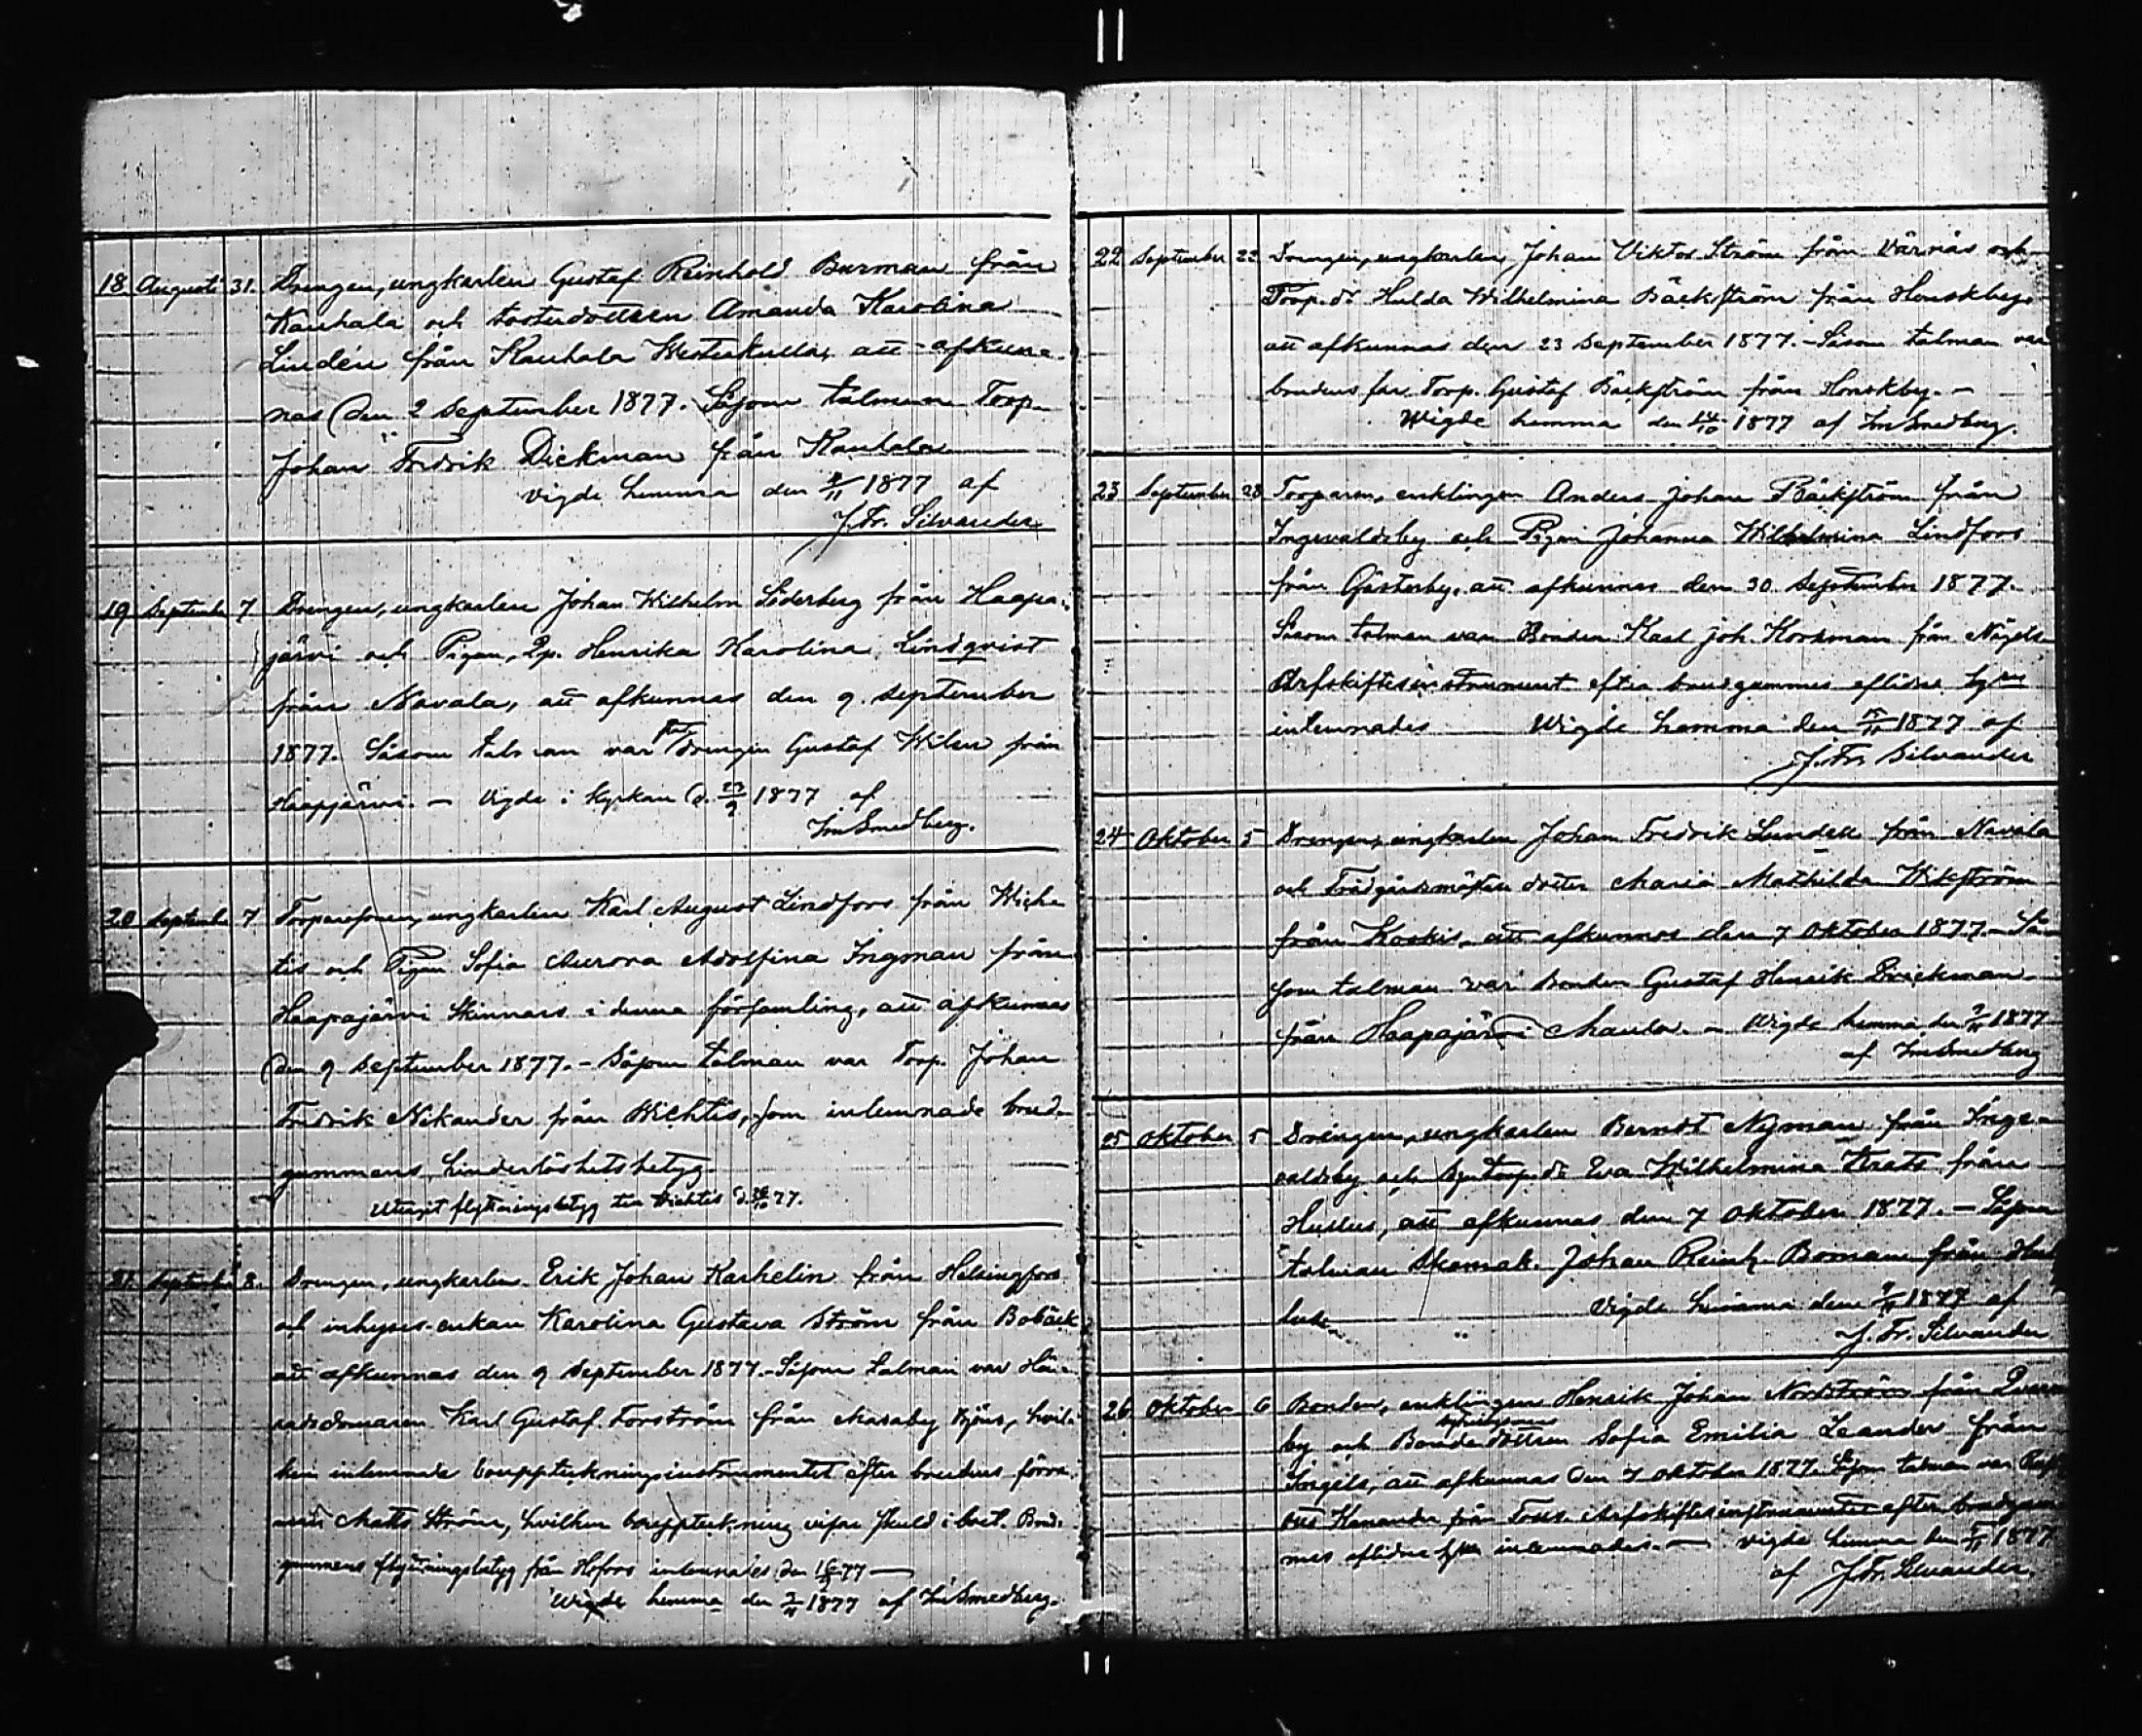 18 Augusti 31. Drengen, ungkarlen Gustaf Reinhold Burman från
Kauhala och torterdottren Amanda Karolina
Lindén från Kauhala Westerkulla, att afkun-
nas den 2 September 1877. Såsom talman Torp.
Johan Fredrik Dickman från Kauhala
vigde hemma den /11 1877 af
J. Fr. Silvander
19 September 7 Drengen, ungkarlen Johan Wilhelm Söderberg från Haapa-
järvi och Pigan, Qp. Henrika Karolina Lindqvist
från Navala, att afkunnas den 9. September
1877. Såsom talman var drengen Gustaf Wilen från
Haapjärvi. – Vigde i kyrkan d. 23/9 1877 af
Im Smedberg.
20 September 7 Torparesonen, ungkarlen Karl August Lindfors från Wich-
tis och Pigan Sofia Aurora Adolfina Ingman från
Haapajärvi Skinnars i denna församling, att afkunnas
den 9 September 1877. – Såsom talman var Torp. Johan
Fredrik Nikander från Wichtis, som inlemnade brud-
gummens hinderlöshetsbetyg.
Uttagit flyttningsbetyg till Wichtis d. /10 77.
21 September 8. Drengen, ungkarlen Erik Johan Karhelin från Helsingfors
och inhyses-enkan Karolina Gustava Ström från Bobäck
att afkunnas den 9 September 1877. – Såsom talman var Hä-
radsdomaren Karl Gustaf Forström från Masaby Björs, hvil-
ken inlemnade bouppteckningsinstrumentet efter brudens förra
man Matts Ström, hvilken bouppteckning visar skuld i boet. Brud-
gummens flyttningsbetyg från H:fors inlemnades den 77 –
Wigde hemma den 2/11 1877 af Im Smedberg.
22 September 22 Drengen, ungkarlen Johan Viktor Ström från Värnäs och
Torp. dr Hulda Wilhelmina Bäckström från Honskby,
att afkunnas den 23 September 1877. – Såsom talman var
brudens far Torp. Gustaf Bäckström från Honskby. –
Wigde hemma den 14/10 1877 af Im Smedberg.
23 September 28 Torparen, enklingen Anders Johan Bäckström från
Ingevaldsby och Pigan Johanna Wilhelmina Lindfors
från Gästerby, att afkunnas den 30 September 1877.
Såsom talman var Bonden Karl Joh. Korkman från Nägels
Arfskiftesinstrument efter brudgummes aflidne hustru
inlemnades Wigde hemma den /11 1877 af
J. Fr. Silvander
24 Oktober 5 Drengen, ungkarlen Johan Fredrik Lundell från Navala
och Trädgårdsmästare dotter Maria Mathilda Wikström
från Koskis, att afkunnas den 7 Oktober 1877. – Så-
som talman var Bonden Gustaf Henrik Dickman
från Haapajärvi Maula. – Wigde hemma den /11 1877
af Im Smedberg
25 Oktober 5 Drengen, ungkarlen Berndt Nyman från Inge-
valdsby och torp. dr Eva Wilhelmina från
Husus, att afkunnas den 7 Oktober 1877. – Såsom
talman Skomak. Johan Reinh. Boman från
Vigde hemma den /11 1877 af
J. Fr. Silvander
26 Oktober 6 Bonden, enklingen Henrik Johan Nordström från Qvarn-
by och Bondedottren Sofia Emilia Leander från
Ingels, att afkunnas den 7 Oktober 1877. Såsom talman var
från Arfskiftesinstrumentet efter brudgum-
mes aflidne inlemnades. – vigde hemma den /11 1877
af J. Fr. Silvander.